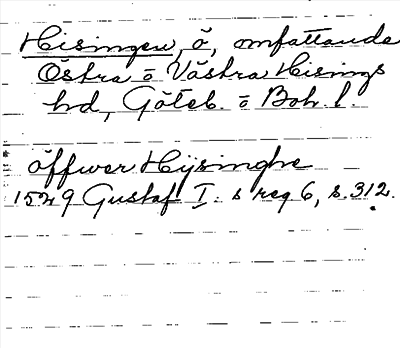 Hisingen, ö, omfattande
Östra o Västra Hisings
hd, Göteb. o Boh. l.
öffwer Hijsinghe
1529 Gustaf I. s reg 6, s. 312.